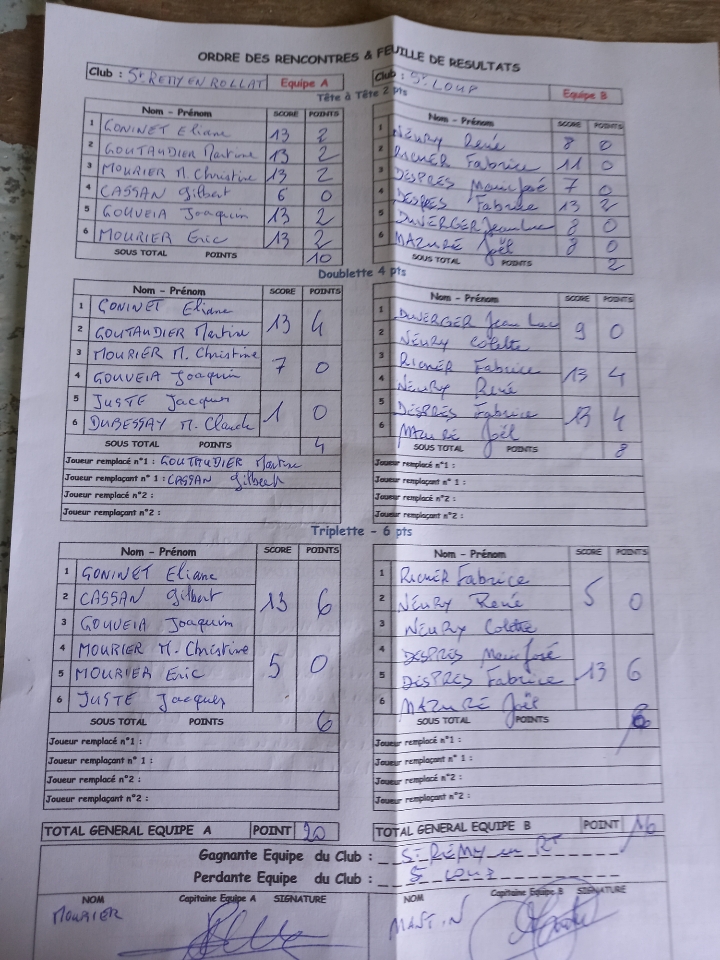 ORDRE DES RENCONTRES & FEUILLE DE RESULTATS
Club : St REMY EN ROLLAT Equipe A
Club : St LOUP Equipe B
Tête à Tête 2 pts
Nom - Prénom SCORE POINTS
1 GONINET Eliane 13 2
2 GOUTAUDIER Martine 13 2
3 MOURIER M. Christine 13 2
4 CASSAN Gilbert 6 0
5 GOUVEIA Joaquin 13 2
6 MOURIER Eric 13 2
SOUS TOTAL POINTS 10
Nom - Prénom SCORE POINTS
1 NEURY René 8 0
2 RICHER Fabrice 11 0
3 DESPRES Marie José 7 0
4 DESPRES Fabrice 13 2
5 DUVERGER Jean Luc 8 0
6 MAZURÉ Joël 8 0
SOUS TOTAL POINTS 2
Doublette 4 pts
Nom - Prénom SCORE POINTS
1 GONINET Eliane
2 GOUTAUDIER Martine
13 4
3 MOURIER M. Christine
4 GOUVEIA Joaquin
7 0
5 JUSTE Jacques
6 DUBESSAY M. Claude
1 0
SOUS TOTAL POINTS 4
Joueur remplacé n°1 : GOUTAUDIER Martine
Joueur remplaçant n° 1 : CASSAN Gilbert
Joueur remplacé n°2 :
Joueur remplaçant n°2 :
Nom - Prénom SCORE POINTS
1 DUVERGER Jean Luc
2 NEURY Colette
9 0
3 RICHER Fabrice
4 NEURY René
13 4
5 DESPRES Fabrice
6 MAZURÉ Joël
13 4
SOUS TOTAL POINTS 8
Joueur remplacé n°1 :
Joueur remplaçant n° 1 :
Joueur remplacé n°2 :
Joueur remplaçant n°2 :
Triplette - 6 pts
Nom - Prénom SCORE POINTS
1 GONINET Eliane
2 CASSAN Gilbert
3 GOUVEIA Joaquin
13 6
4 MOURIER M. Christine
5 MOURIER Eric
6 JUSTE Jacques
5 0
SOUS TOTAL POINTS 6
Joueur remplacé n°1 :
Joueur remplaçant n° 1 :
Joueur remplacé n°2 :
Joueur remplaçant n°2 :
Nom - Prénom SCORE POINTS
1 RICHER Fabrice
2 NEURY René
3 NEURY Colette
5 0
4 DESPRES Marie José
5 DESPRES Fabrice
6 MAZURÉ Joël
13 6
SOUS TOTAL POINTS 6
Joueur remplacé n°1 :
Joueur remplaçant n° 1 :
Joueur remplacé n°2 :
Joueur remplaçant n°2 :
TOTAL GENERAL EQUIPE A POINT 20
TOTAL GENERAL EQUIPE B POINT 16
Gagnante Equipe du Club : St RÉMY en RT
Perdante Equipe du Club : St LOUP
NOM Capitaine Equipe A SIGNATURE
MOURIER
NOM Capitaine Equipe B SIGNATURE
MARTIN